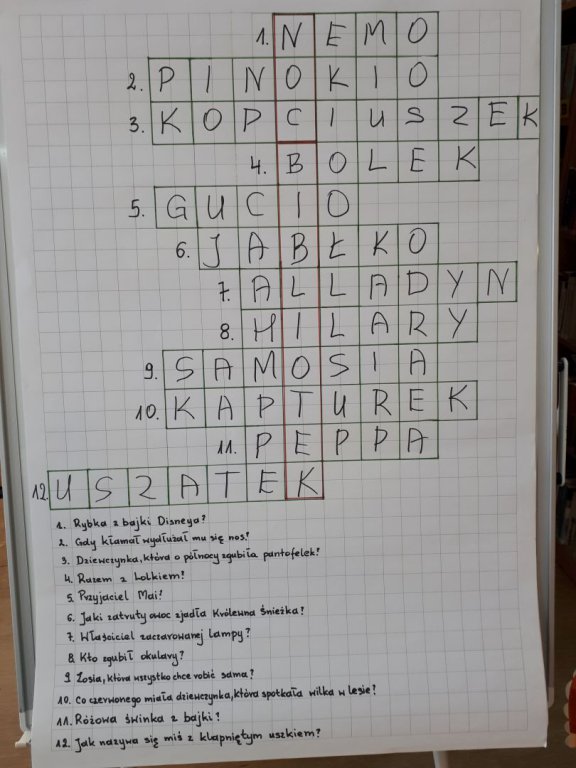 1. NEMO
2. PINOKIO
3. KOPCIUSZEK
4. BOLEK
5. GUCIO
6. JABŁKO
7. ALLADYN
8. HILARY
9. SAMOSIA
10. KAPTUREK
11. PEPPA
12. USZATEK
1. Rybka z bajki Disneya?
2. Gdy kłamał wydłużał mu się nos!
3. Dziewczynka, która o północy zgubiła pantofelek!
4. Razem z Lolkiem!
5. Przyjaciel Mai!
6. Jaki zatruty owoc zjadła Królewna Śnieżka?
7. Właściciel zaczarowanej lampy?
8. Kto zgubił okulary?
9. Zosia, która wszystko chce robić sama?
10. Co czerwonego miała dziewczynka, która spotkała wilka w lesie?
11. Różowa świnka z bajki!
12. Jak nazywa się miś z klapniętym uszkiem?